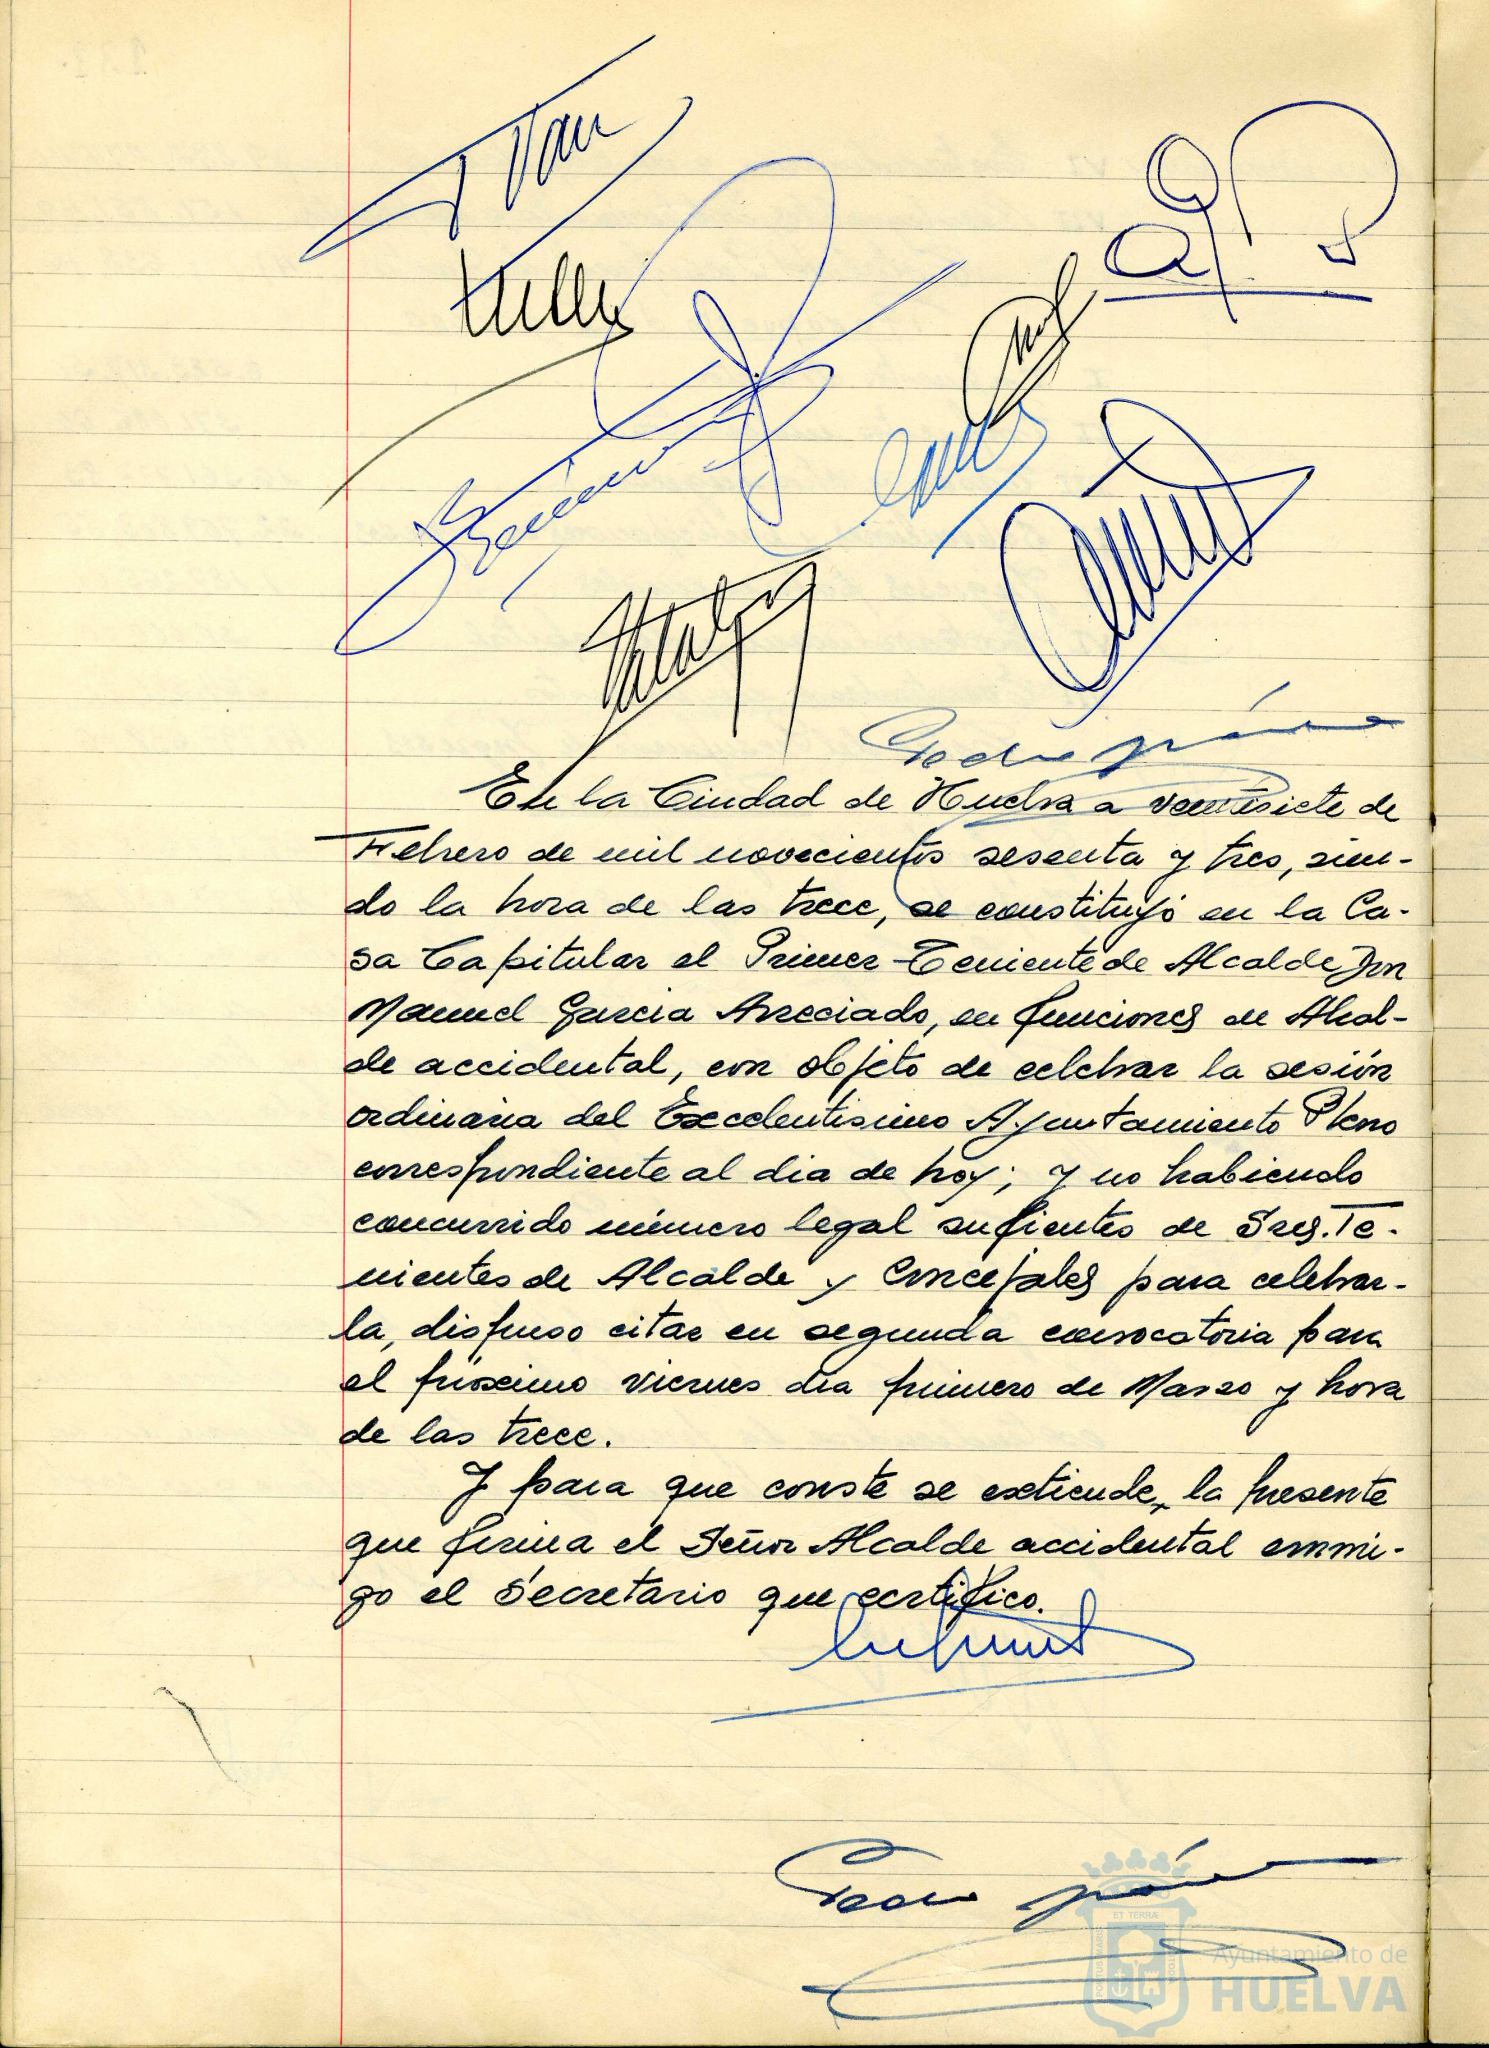 En la Ciudad de Huelva a veintisiete de
Febrero de mil novecientos sesenta y tres, sien-
do la hora de las trece, se constituyó en la Ca-
sa Capitular el Primer Teniente de Alcalde Don
Manuel Garcia Arreciado, en funciones de Alcal-
de accidental, con objeto de celebrar la sesión
ordinaria del Excelentisimo Ayuntamiento Pleno
correspondiente al dia de hoy; y no habiendo
concurrido número legal suficientes de Sres. Te-
nientes de Alcalde y Concejales para celebrar-
la, dispuso citar en segunda convocatoria para
el próximo viernes dia primero de Marzo y hora
de las trece.
Y para que conste se extiende, la presente
que firma el Señor Alcalde accidental conmi-
go el Secretario que certifico.
Ayuntamiento de
HUELVA